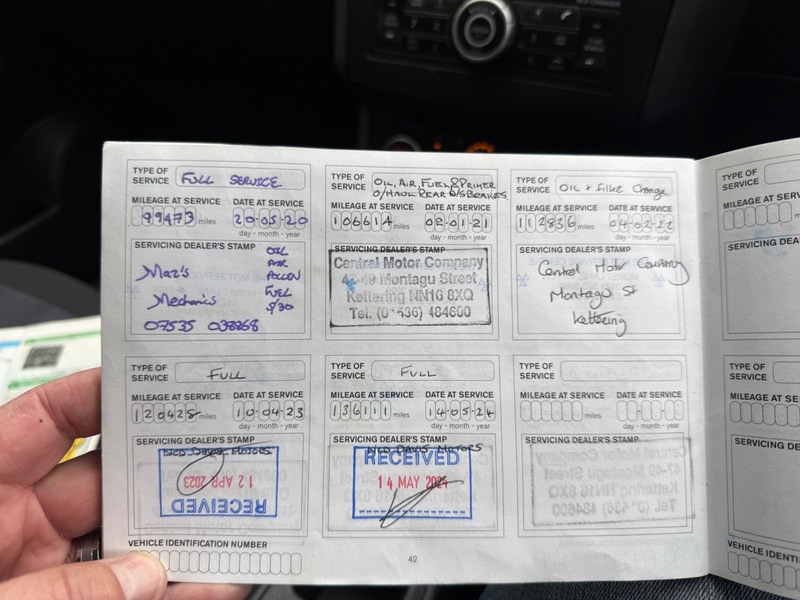 TYPE OF SERVICE FULL SERVICE
MILEAGE AT SERVICE DATE AT SERVICE
99473 miles 20-05-20
day - month - year
SERVICING DEALER'S STAMP
OIL
AIR
POLLEN
FUEL
5/30
Maz's
Mechanics
07535
TYPE OF SERVICE OIL, AIR, FUEL & PRIMER
O/HAUL REAR BRAKES
MILEAGE AT SERVICE DATE AT SERVICE
106614 miles 02-01-21
day - month - year
SERVICING DEALER'S STAMP
Central Motor Company
47-49 Montagu Street
Kettering NN16 8XQ
Tel. (01536) 484600
TYPE OF SERVICE OIL + filter Change
MILEAGE AT SERVICE DATE AT SERVICE
112836 miles 04-02-22
day - month - year
SERVICING DEALER'S STAMP
Central Motor Company
Montagu St
Kettering
TYPE OF SERVICE FULL
MILEAGE AT SERVICE DATE AT SERVICE
120428 miles 10-04-23
day - month - year
SERVICING DEALER'S STAMP
NED DAVIS MOTORS
12 APR 2023
RECEIVED
TYPE OF SERVICE FULL
MILEAGE AT SERVICE DATE AT SERVICE
136111 miles 14-05-24
day - month - year
SERVICING DEALER'S STAMP
NED DAVIS MOTORS
RECEIVED
14 MAY 2024
TYPE OF SERVICE
MILEAGE AT SERVICE DATE AT SERVICE
miles
day - month - year
SERVICING DEALER'S STAMP
Central Motor Company
47-49 Montagu Street
Kettering NN16 8XQ
Tel. (01536) 484600
VEHICLE IDENTIFICATION NUMBER
42
TYPE OF SERVICE
MILEAGE AT SERVICE
SERVICING DEALER
TYPE OF SERVICE
MILEAGE AT SERVICE
SERVICING DEALER
VEHICLE IDENTIFI